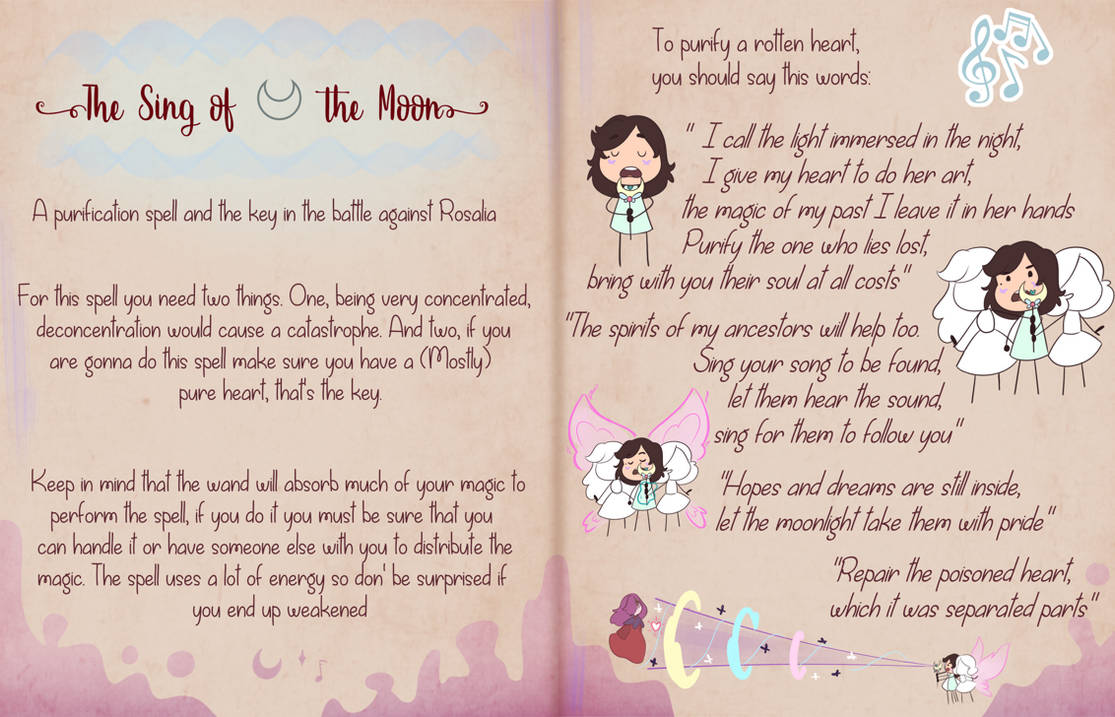 The Sing of the Moon
A purification spell and the key in the battle against Rosalia
For this spell you need two things. One, being very concentrated,
deconcentration would cause a catastrophe. And two, if you
are gonna do this spell make sure you have a (Mostly)
pure heart, that's the key.
Keep in mind that the wand will absorb much of your magic to
perform the spell, if you do it you must be sure that you
can handle it or have someone else with you to distribute the
magic. The spell uses a lot of energy so don' be surprised if
you end up weakened
To purify a rotten heart,
you should say this words:
" I call the light immersed in the night,
I give my heart to do her art,
the magic of my past I leave it in her hands
Purify the one who lies lost,
bring with you their soul at all costs"
"The spirits of my ancestors will help too.
Sing your song to be found,
let them hear the sound,
sing for them to follow you"
"Hopes and dreams are still inside,
let the moonlight take them with pride"
"Repair the poisoned heart,
which it was separated parts"